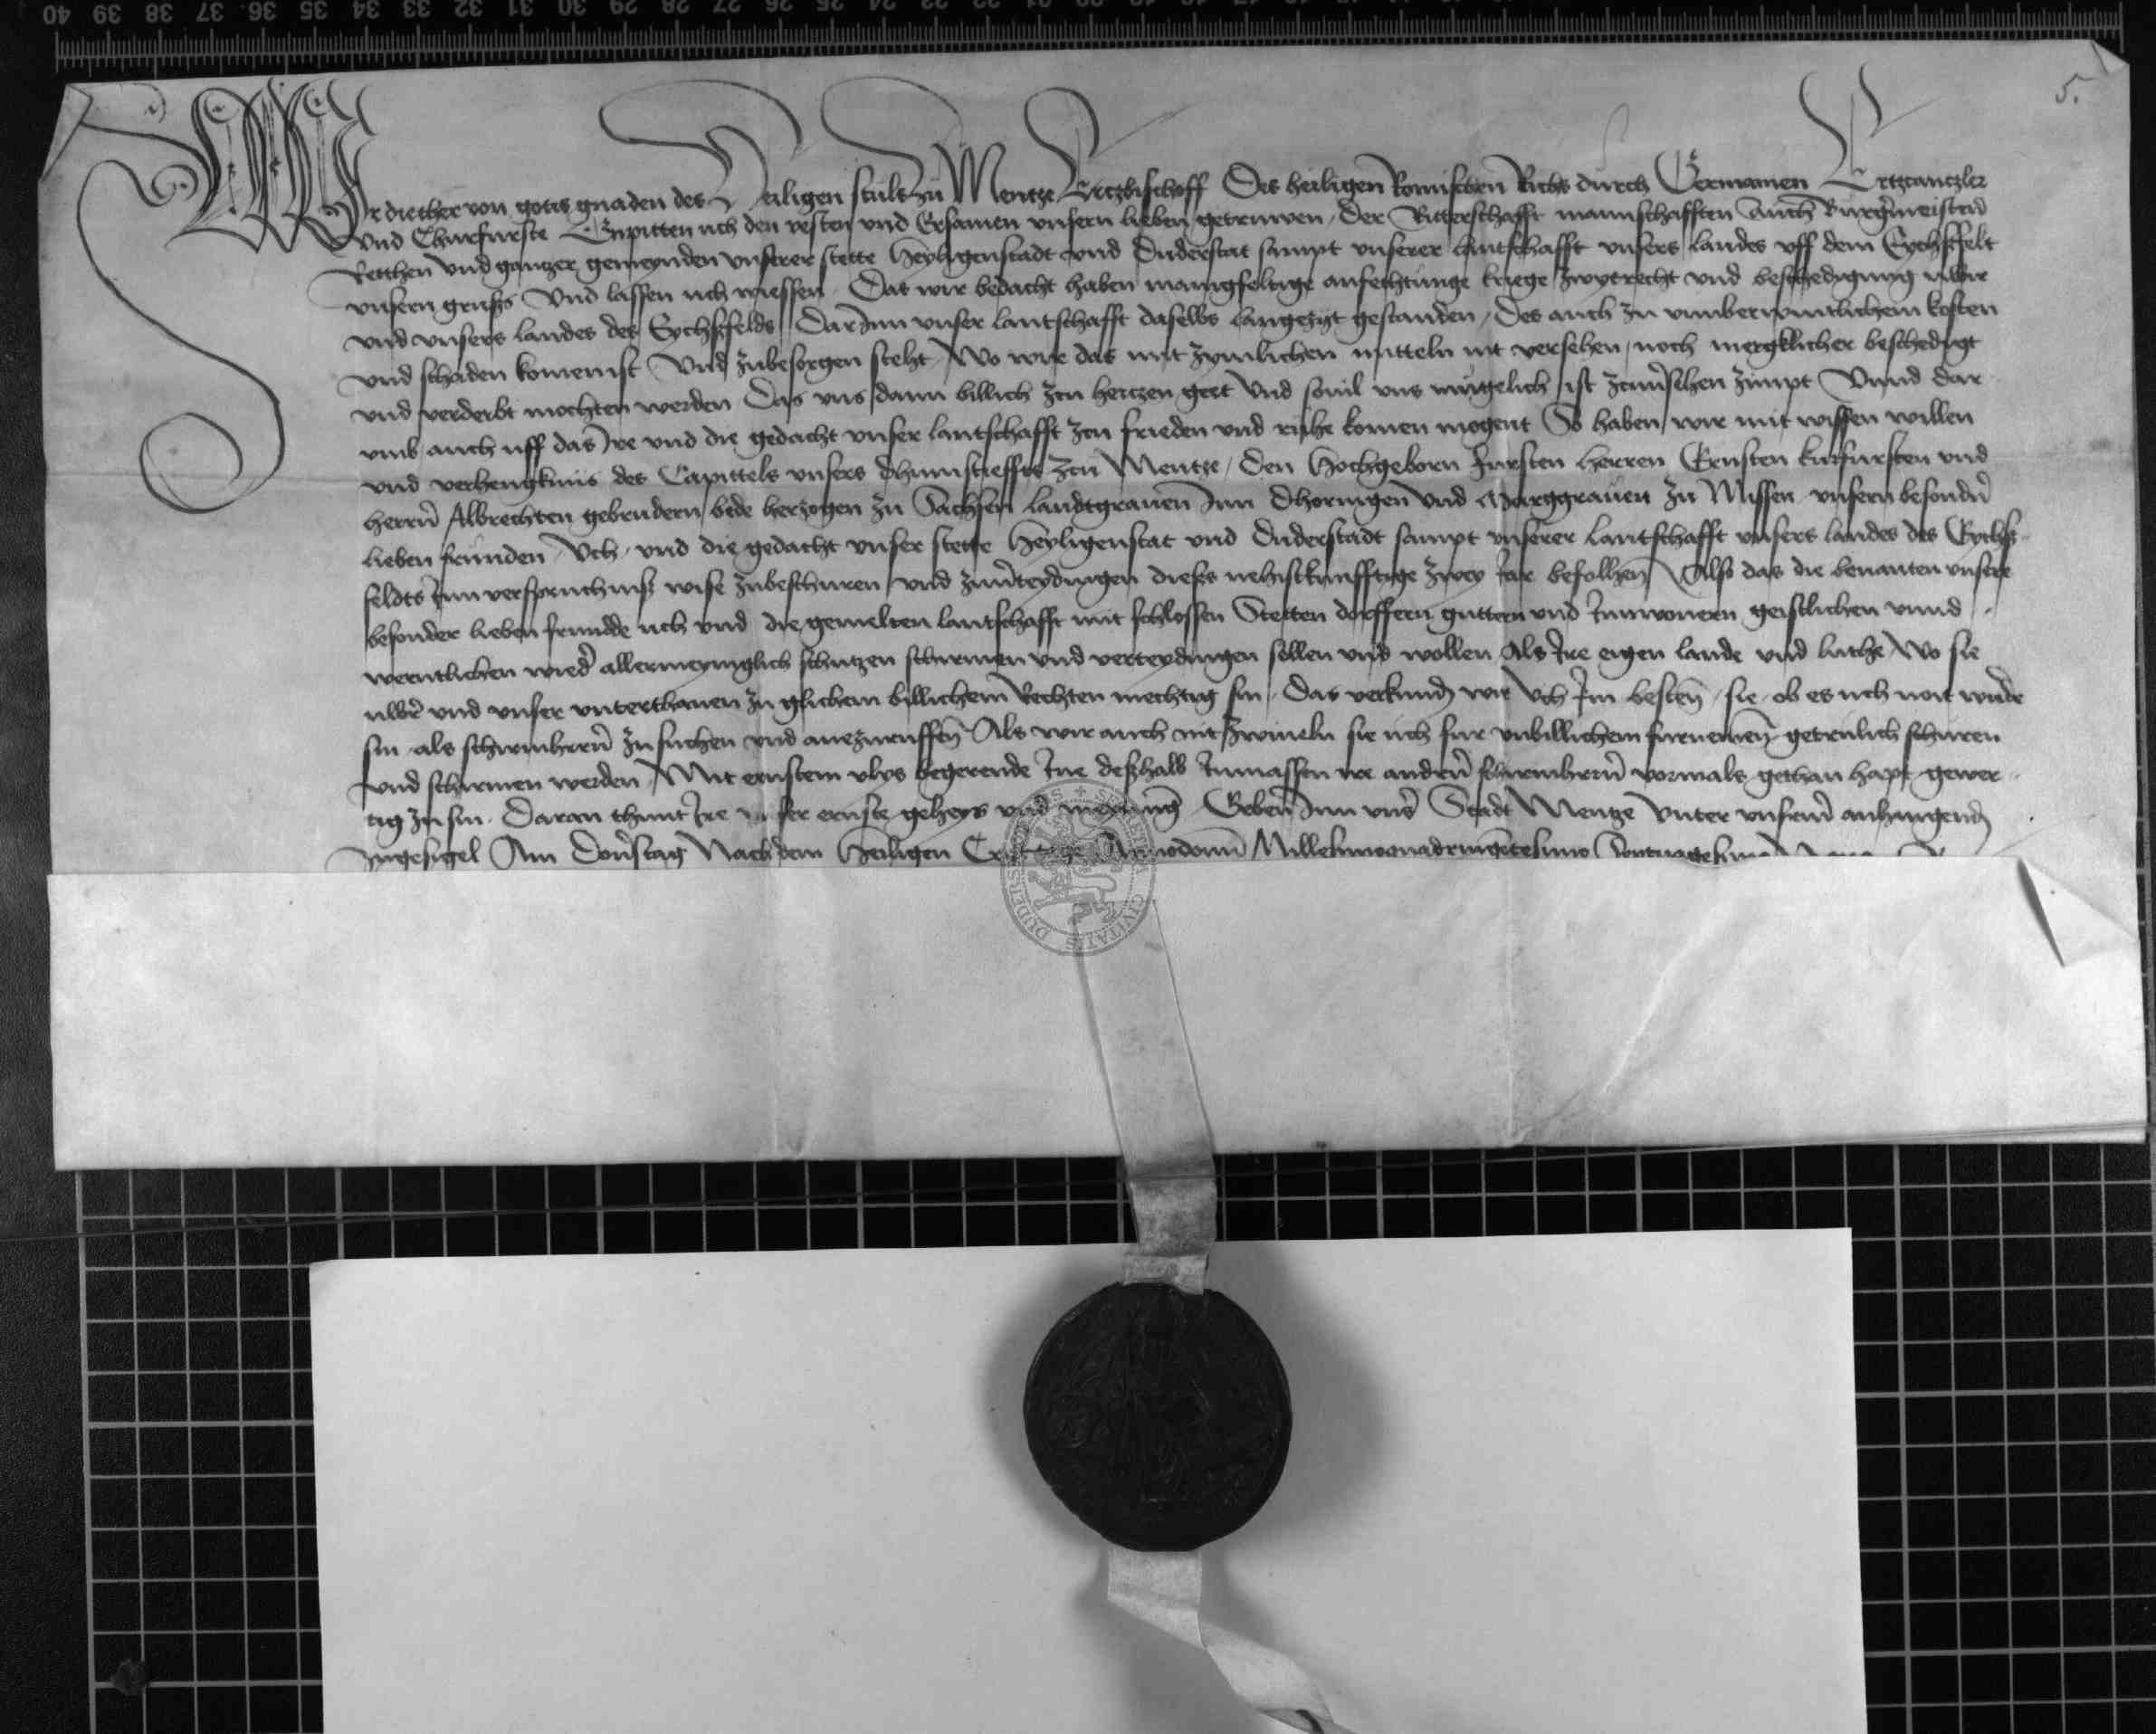 40 39 38 37 36 35 34 33 32 31 30 29 28 27 26 25 24 23 22 21 20 19 18 17 16
5.
Wir diether von gotis gnaden des Heiligen stuls zu Mentze Ertzbischoff Des heiligen Romischen Richs durch Germanien Ertzcantzler
vnd Churfurste Enpitten uch den vesten vnd Ersamen vnsern lieben getruwen, Der Ritterschafft mannschafften auch Burgermeistern
Retthen vnd gantzer gemeynden vnserer stette Heyligenstadt vnd Duderstat sampt vnserer lantschafft vnsers landes vff dem Eychsfelt
vnsern gruss Vnd lassen uch wiessen, Dat wir bedacht haben manigfeltige anfechtunge kriege zwytrecht vnd beschedigung uwer
vnd vnsers landes des Eychsfelds Darinn vnser lantschafft daselbs langezyt gestanden, Des auch zu kosten
vnd schaden komen ist Vnd zubesorgen steht, Wo wir das mit zymlichen mitteln nit versehen, noch mergklicher beschedigt
vnd verderbt mochten werden Das vns dann billich zcu hertzen geet Vnd souil vns mugelich ist zimpt Vnnd dar
vmb auch uff das Ire vnd die gedacht vnser lantschafft zcu frieden vnd ruhe komen mogent So haben wir mit wissen willen
vnd verhengknis des Capittels vnsers dhumstieffts zcu Mentze, Den Hochgeborn fursten herren Ernsten kurfursten vnd
herrn Albrechten gebrudern bede herzogen zu Sachsen landtgrauen Inn Dhoringen vnd Marggrauen zu Missen vnsern besondern
lieben frunden, Uch, vnd die gedacht vnser stette Heyligenstat vnd Duderstadt sampt vnserer lantschafft vnsers landes des Eychs-
feldts Inn versprüchnis wise zubeschuren vnd zuuerteydingen dieses nehistkunfftige zwey Jar befolhen Also das die benanten vnsere
besonder lieben frundde uch vnd die gemelten lantschafft mit schlossen Stetten dorffern guttern vnd Innwonern geistlichen vnnd
werntlichen wieder allermeyniglich schutzen schirmen vnd verteydingen sollen vnd wollen Als Ire eigen lande vnd luthe Wo sie
uwer vnd vnser vnterthanen zu glichem billichem Rechten mechtig sin, Das verkunden wir Uch Im besten, sie, ob es uch noit wirde
sin als schirmherrn zusuchen vnd anezuruffen Als wir auch nit zwiueln sie uch fur vnbillichem furnemen getrulich schuren
vnd schirmen werden, Mit ernstem vlys begerende Ine deßhalb Inmassen ire andern schirmherrn vormals gethan hapt gewer-
tig zu sin. Daran thunt Ire vnser ernste geheys vnd meynung Geben Inn vnser Stadt Mentze Vnter vnserm anhangenden
Ingesigel Am Dornstag Nach dem Heiligen Anno domini Millesimoquadringentesimo Septuagesimo
CIVITATIS DUDERS